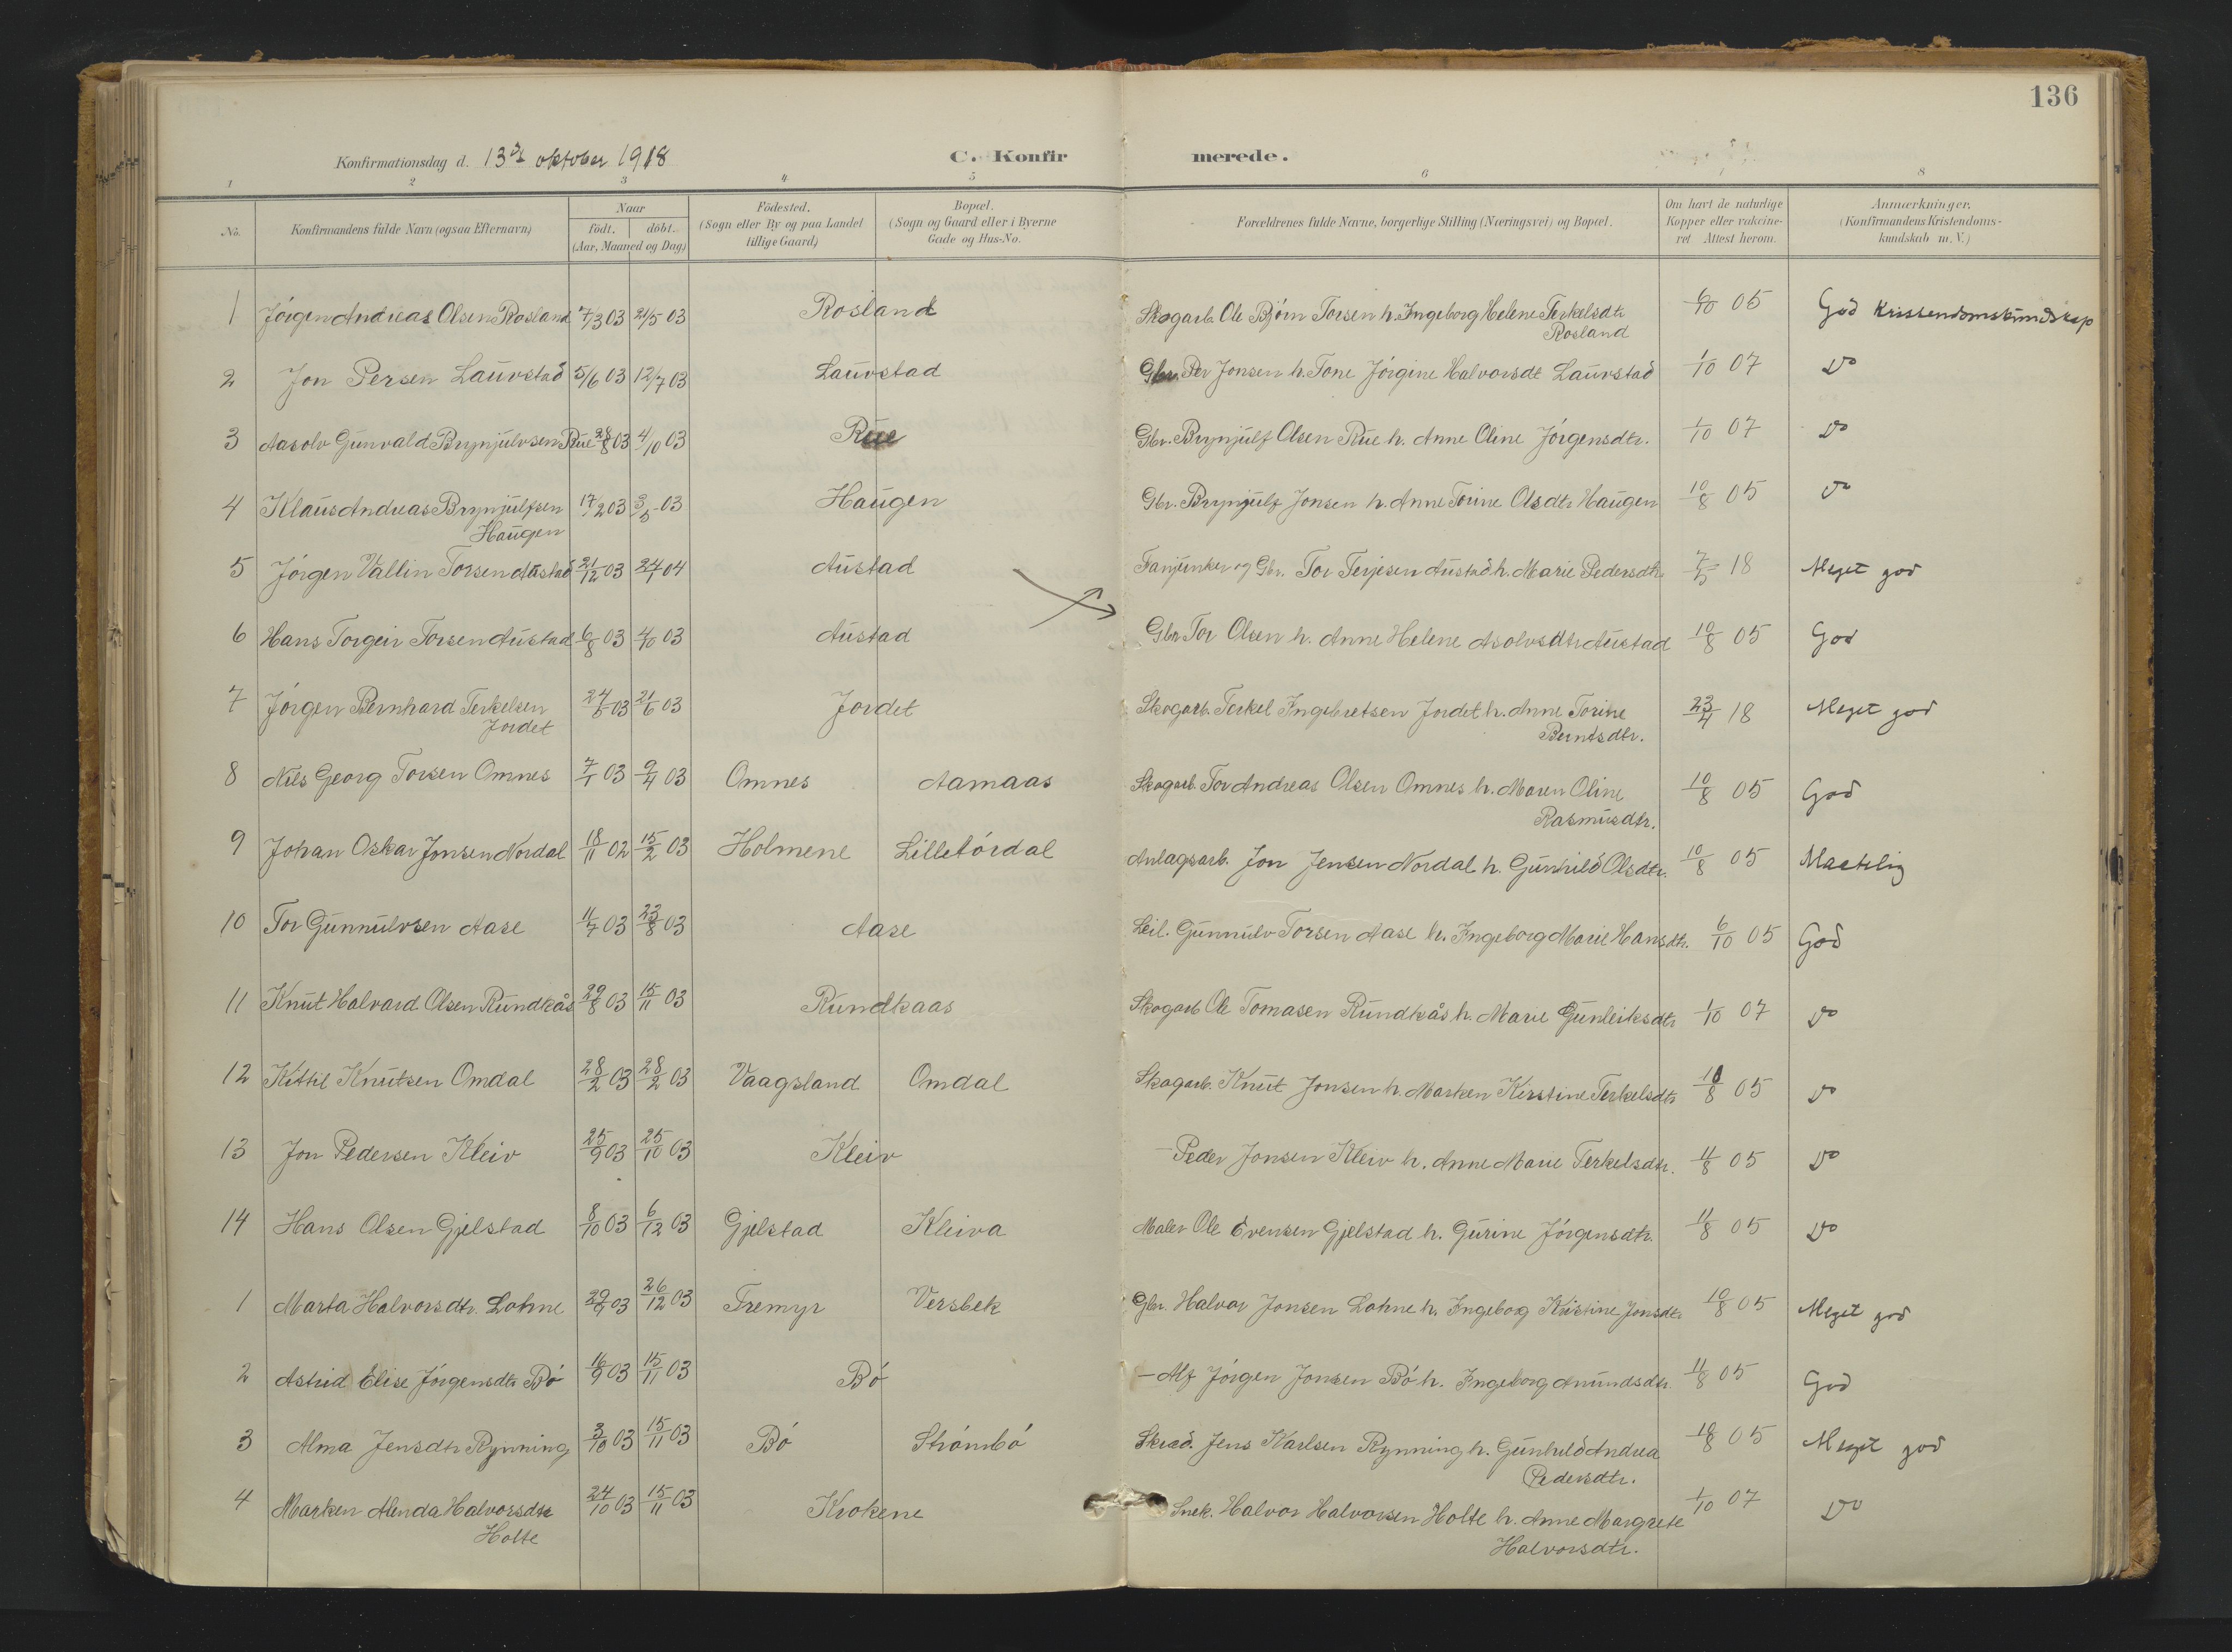 136
Konfirmationsdag d. 13de oktober 1918 C. Konfirmerede.
1 2 3 4 5 6 8
No. Konfirmandens fulde Navn (ogsaa Efternavn) Naar Födested. Bopæl. Forældrenes fulde Navne, borgerlige Stilling (Næringsvei) og Bopæl. Om havt de naturlige Anmærkninger.
födt. döbt. (Sogn eller By og paa Landet (Sogn og Gaard eller i Byerne Kopper eller vakcine- (Konfirmandens Kristendoms-
(Aar, Maaned og Dag) tillige Gaard) Gade og Hus-No. ret Attest herom. kundskab m. V.)
1 Jörgen Andreas Olsen Rosland 7/3 03 21/5 03 Rosland Skogarb. Ole Björn Torsen h. Ingeborg Helene Terkelsdtr 6/10 05 God Kristendomskundskap
Rosland
2 Jon Persen Laurstad 5/6 03 12/7 03 Laurstad Gbr. Per Jonsen h. Tone Jörgine Halvorsdt Laurstad 1/10 07 Do
3 Aasolv Gunvald Brynjulvsen Rue 28/8 03 4/10 03 Rue Gbr. Brynjulf Olsen Rue h. Anne Oline Jörgensdtr. 1/10 07 Do
4 Klaus Andreas Brynjulfsen 17/2 03 3/5 03 Haugen Gbr. Brynjulf Jonsen h. Anne Torine Olsdtr Haugen 10/8 05 Do
Haugen
5 Jörgen Vallin Torsen Austad 21/12 03 24/1 04 Austad Fanjunker og Gbr. Tor Terjesen Austad h. Marie Pedersdtr. 7/5 18 Meget god
6 Hans Torgeir Torsen Austad 6/8 03 4/10 03 Austad Gbr Tor Olsen h. Anne Helene Asolvsdtr Austad 10/8 05 God
7 Jörgen Bernhard Terkelsen 24/5 03 21/6 03 Jordet Skogarb. Terkel Ingebretsen Jordet h. Anne Torine 23/4 18 Meget god
Jordet Berntsdtr.
8 Nils Georg Torsen Omnes 7/1 03 9/4 03 Omnes Aamaas Skogarb. Tor Andreas Olsen Omnes h. Maren Oline 10/8 05 God
Rasmusdtr.
9 Johan Oskar Jonsen Nordal 18/11 02 15/2 03 Holmene Lilletördal Anlagsarb. Jon Jensen Nordal h. Gunhild Olsdtr. 10/8 05 Maatelig
10 Tor Gunnulvsen Aase 11/7 03 23/8 03 Aase Leil. Gunnulv Torsen Aase h. Ingeborg Marie Hansdtr. 6/10 05 God
11 Knut Halvard Olsen Rundkås 29/8 03 15/11 03 Rundkaas Skogarb Ole Tomasen Rundkås h. Marie Gunleiksdtr 1/10 07 Do
12 Kittil Knutsen Omdal 28/2 03 28/2 03 Vaagsland Omdal Skogarb. Knut Jonsen h. Marken Kirstine Terkelsdtr 10/8 05 Do
13 Jon Pedersen Kleiv 25/9 03 25/10 03 Kleiv - Peder Jonsen Kleiv h. Anne Marie Terkelsdtr. 11/8 05 Do
14 Hans Olsen Gjelstad 8/10 03 6/12 03 Gjelstad Kleiva Maler Ole Evensen Gjelstad h. Gurine Jörgensdtr. 11/8 05 Do
1 Marta Halvorsdtr. Lohne 29/9 03 26/12 03 Tremyr Versbek Gbr. Halvor Jonsen Lohne h. Ingeborg Kristine Jonsdtr 10/8 05 Meget god
2 Astrid Elise Jörgensdtr Bö 16/9 03 15/11 03 Bö - Alf Jörgen Jonsen Bö h. Ingeborg Anundsdtr. 11/8 05 God
3 Alma Jensdtr Rynning 3/10 03 15/11 03 Bö Strömbö Skræd. Jens Karlsen Rynning h. Gunhild Andrea 10/8 05 Meget god
Pedersdtr.
4 Marken Alenda Halvorsdtr 24/10 03 15/11 03 Krokene Snek. Halvor Halvorsen Holte h. Anne Margrete 1/10 07 Do
Holte Halvorsdtr.